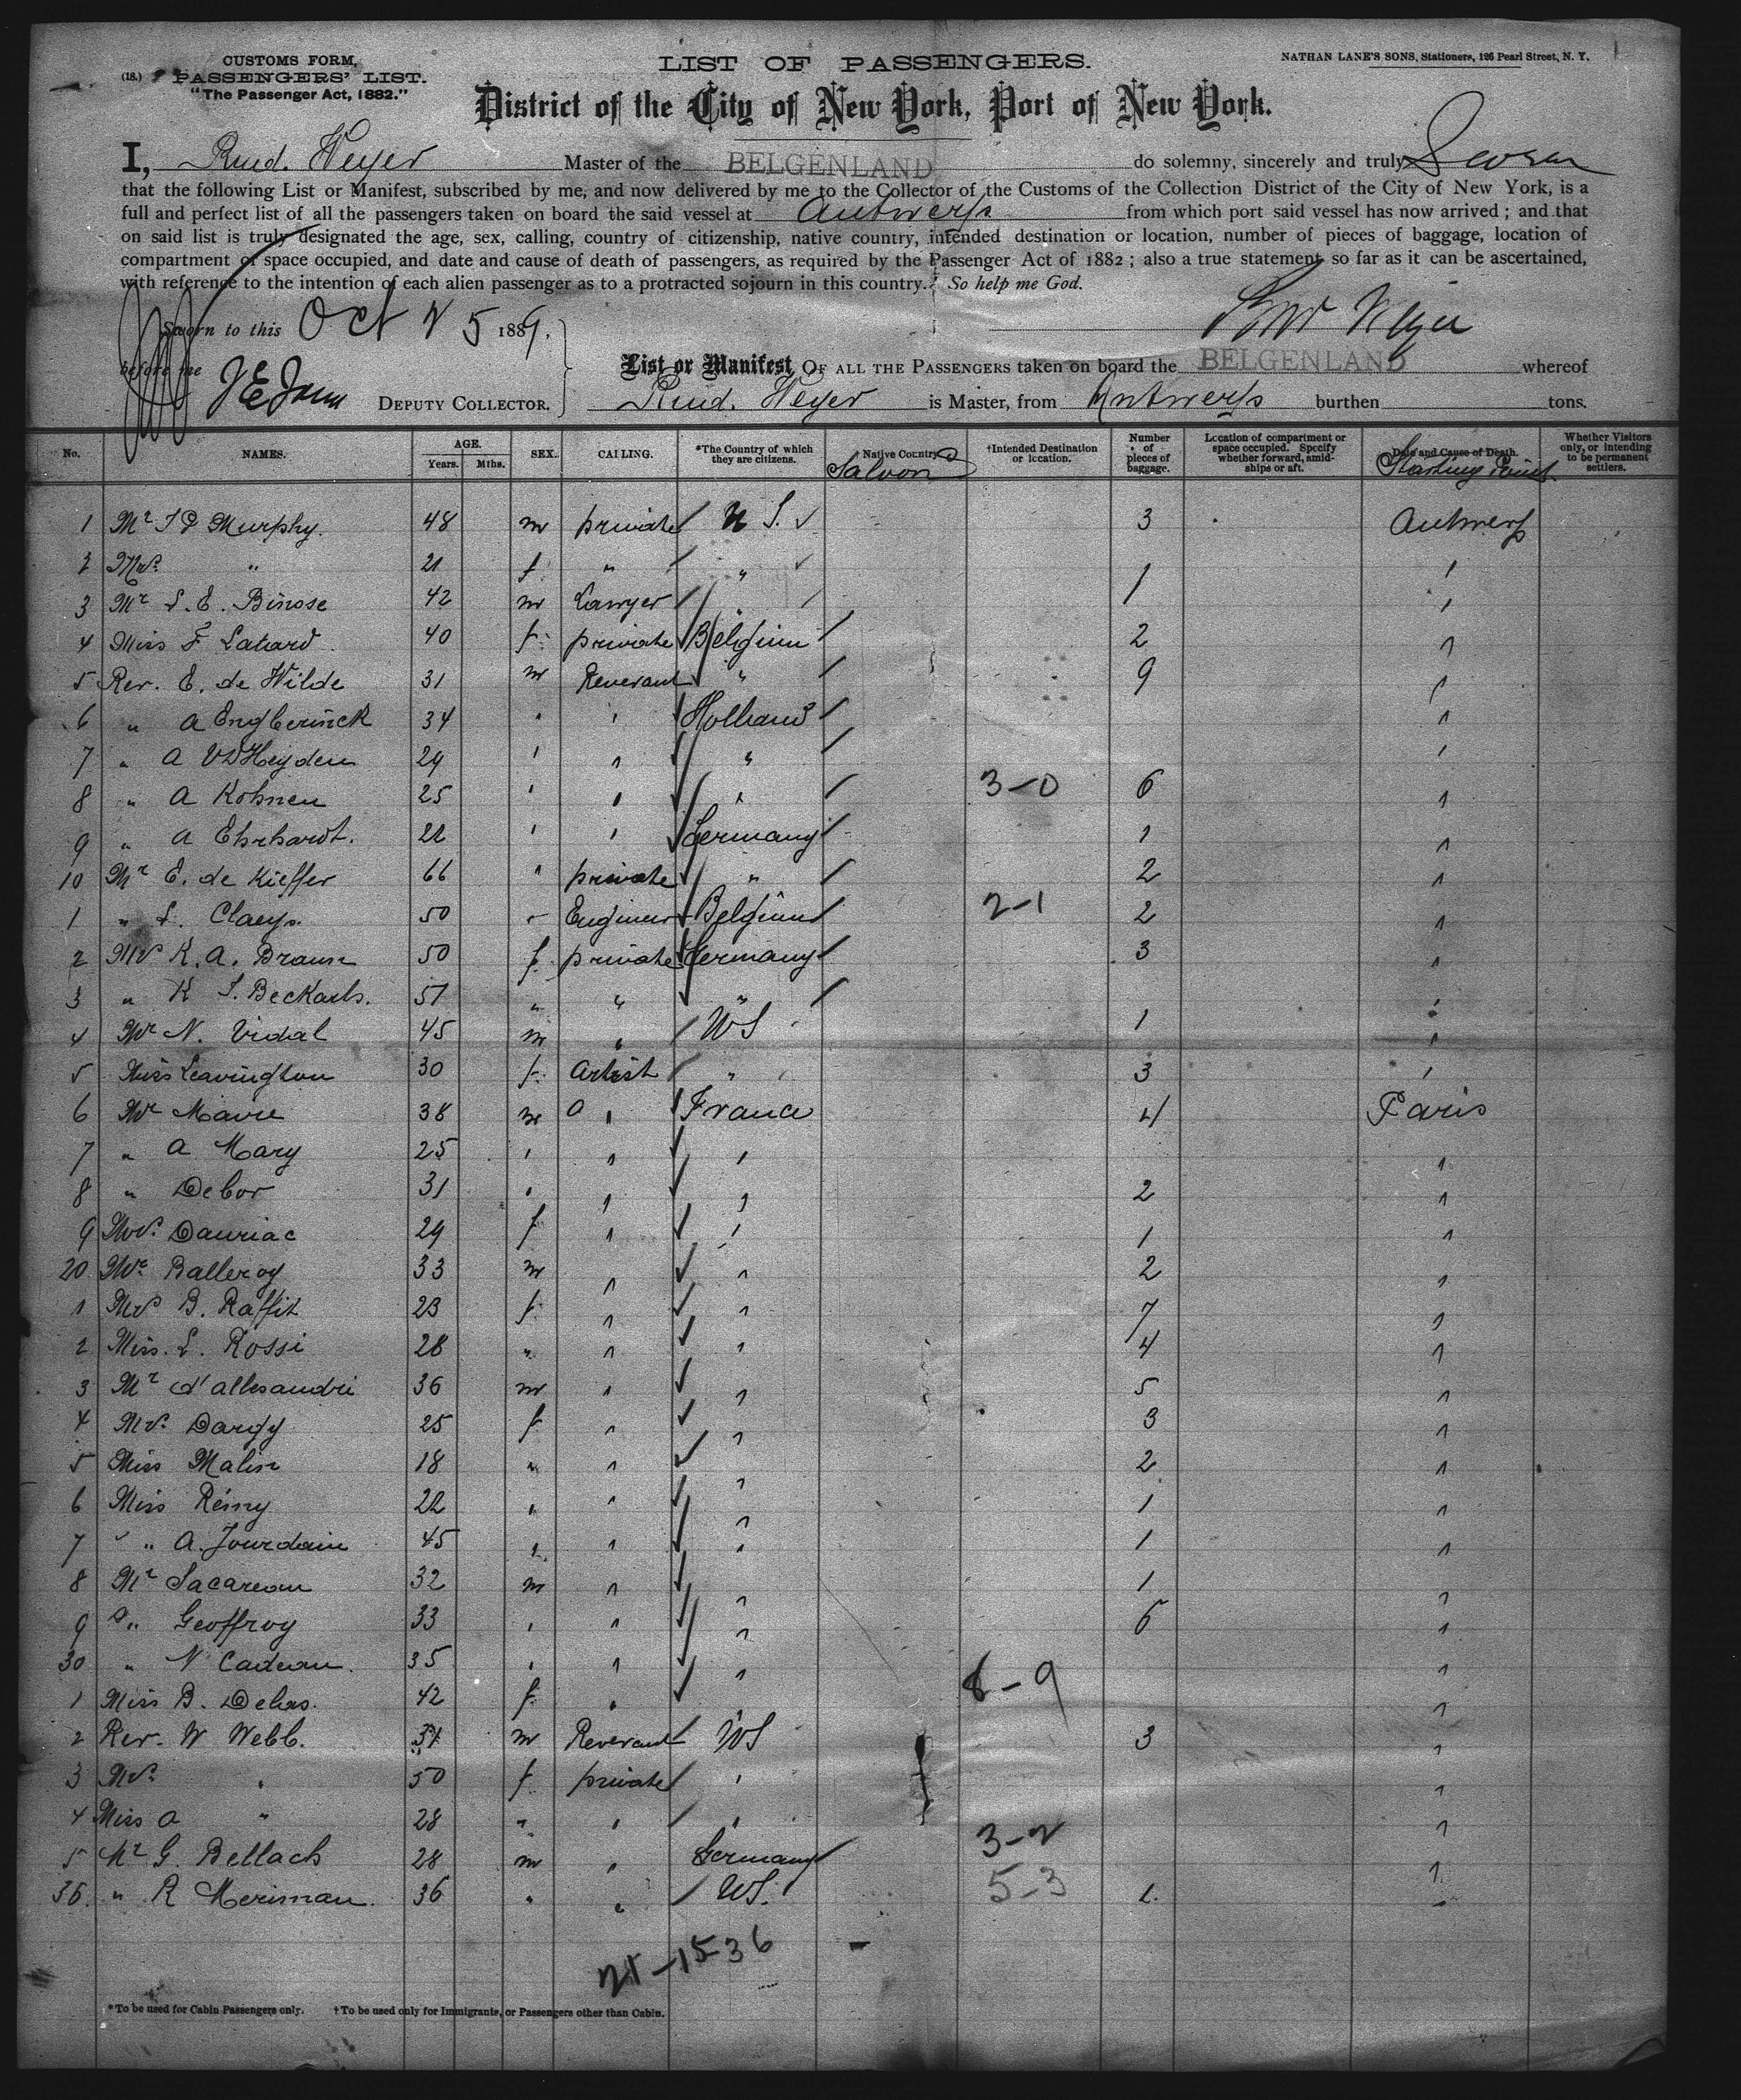 CUSTOMS FORM,
(18.) PASSENGERS' LIST.
"The Passenger Act, 1882."
LIST OF PASSENGERS.
NATHAN LANE'S SONS, Stationers, 126 Pearl Street, N. Y.
District of the City of New York, Port of New York.
I, Rud. Weyer Master of the BELGENLAND do solemny, sincerely and truly Swear
that the following List or Manifest, subscribed by me, and now delivered by me to the Collector of the Customs of the Collection District of the City of New York, is a
full and perfect list of all the passengers taken on board the said vessel at Antwerp from which port said vessel has now arrived ; and that
on said list is truly designated the age, sex, calling, country of citizenship, native country, intended destination or location, number of pieces of baggage, location of
compartment or space occupied, and date and cause of death of passengers, as required by the Passenger Act of 1882 ; also a true statement so far as it can be ascertained,
with reference to the intention of each alien passenger as to a protracted sojourn in this country. So help me God.
Sworn to this Oct 25 1889.
Rud Weyer
before me
DEPUTY COLLECTOR.
List or Manifest OF ALL THE PASSENGERS taken on board the BELGENLAND whereof
Rud. Weyer is Master, from Antwerp burthen tons.
No. NAMES. AGE. Years. Mths. SEX. CALLING. *The Country of which they are citizens. Native Country †Intended Destination or location. Number of pieces of baggage. Location of compartment or space occupied. Specify whether forward, amidships or aft. Date and Cause of Death. Whether Visitors only, or intending to be permanent settlers.
Saloon Starting Point
1 Mr T P Murphy. 48 m private U S. 3 Antwerp
2 Mrs " 21 f " "
3 Mr L. E. Binose 42 m Lawyer " 1
4 Miss F Latard 40 f. private Belgium 2
5 Rev. E. de Wilde 31 m Reverant " 9
6 " A Engberinck 34 " " Holland
7 " A VDHeyden 29 " " "
8 " A Kohnen 25 " " " 3-0 6
9 " A Ehrhardt. 22 " " Germany 1
10 Mr E. de Kieffer 66 " private " 2
1 " L. Claeys. 50 " Engineer Belgium 2-1 2
2 Mrs K. A. Braun 50 f. private Germany 3
3 " K S. Beckarts. 51 " " "
4 Mr N. Vidal 45 m " US 1
5 Miss Leavington 30 f. Artist " 3
6 Mr Mavre 38 m " France 4 Paris
7 " A Mary 25 " " "
8 " Debor 31 " " " 2
9 Mrs. Dauriac 29 f " " 1
20 Mr Balleroy 33 m " " 2
1 Mrs B. Raffit 23 f. " " 7
2 Miss. L. Rossi 28 " " " 4
3 Mr d'allesandri 36 m " " 5
4 Mrs. Dargy 25 f " " 3
5 Miss Malin 18 " " " 2
6 Miss Rémy 22 " " " 1
7 " A. Jourdain 45 " " " 1
8 Mr Lacareau 32 m " " 1
9 " Geoffroy 33 " " " 6
30 " N Cadeau. 35 " " "
1 Miss B. Delias. 42 f. " 8-9
2 Rev. W Webb. m Reverant US 3
3 Mrs. " 50 f private "
4 Miss A " 28 " " "
5 Mr G. Bellach 28 m " Germany 3-2
36. " R Meriman. 36 " " US. 5-3
21-15-36
*To be used for Cabin Passengers only. †To be used only for Immigrants, or Passengers other than Cabin.